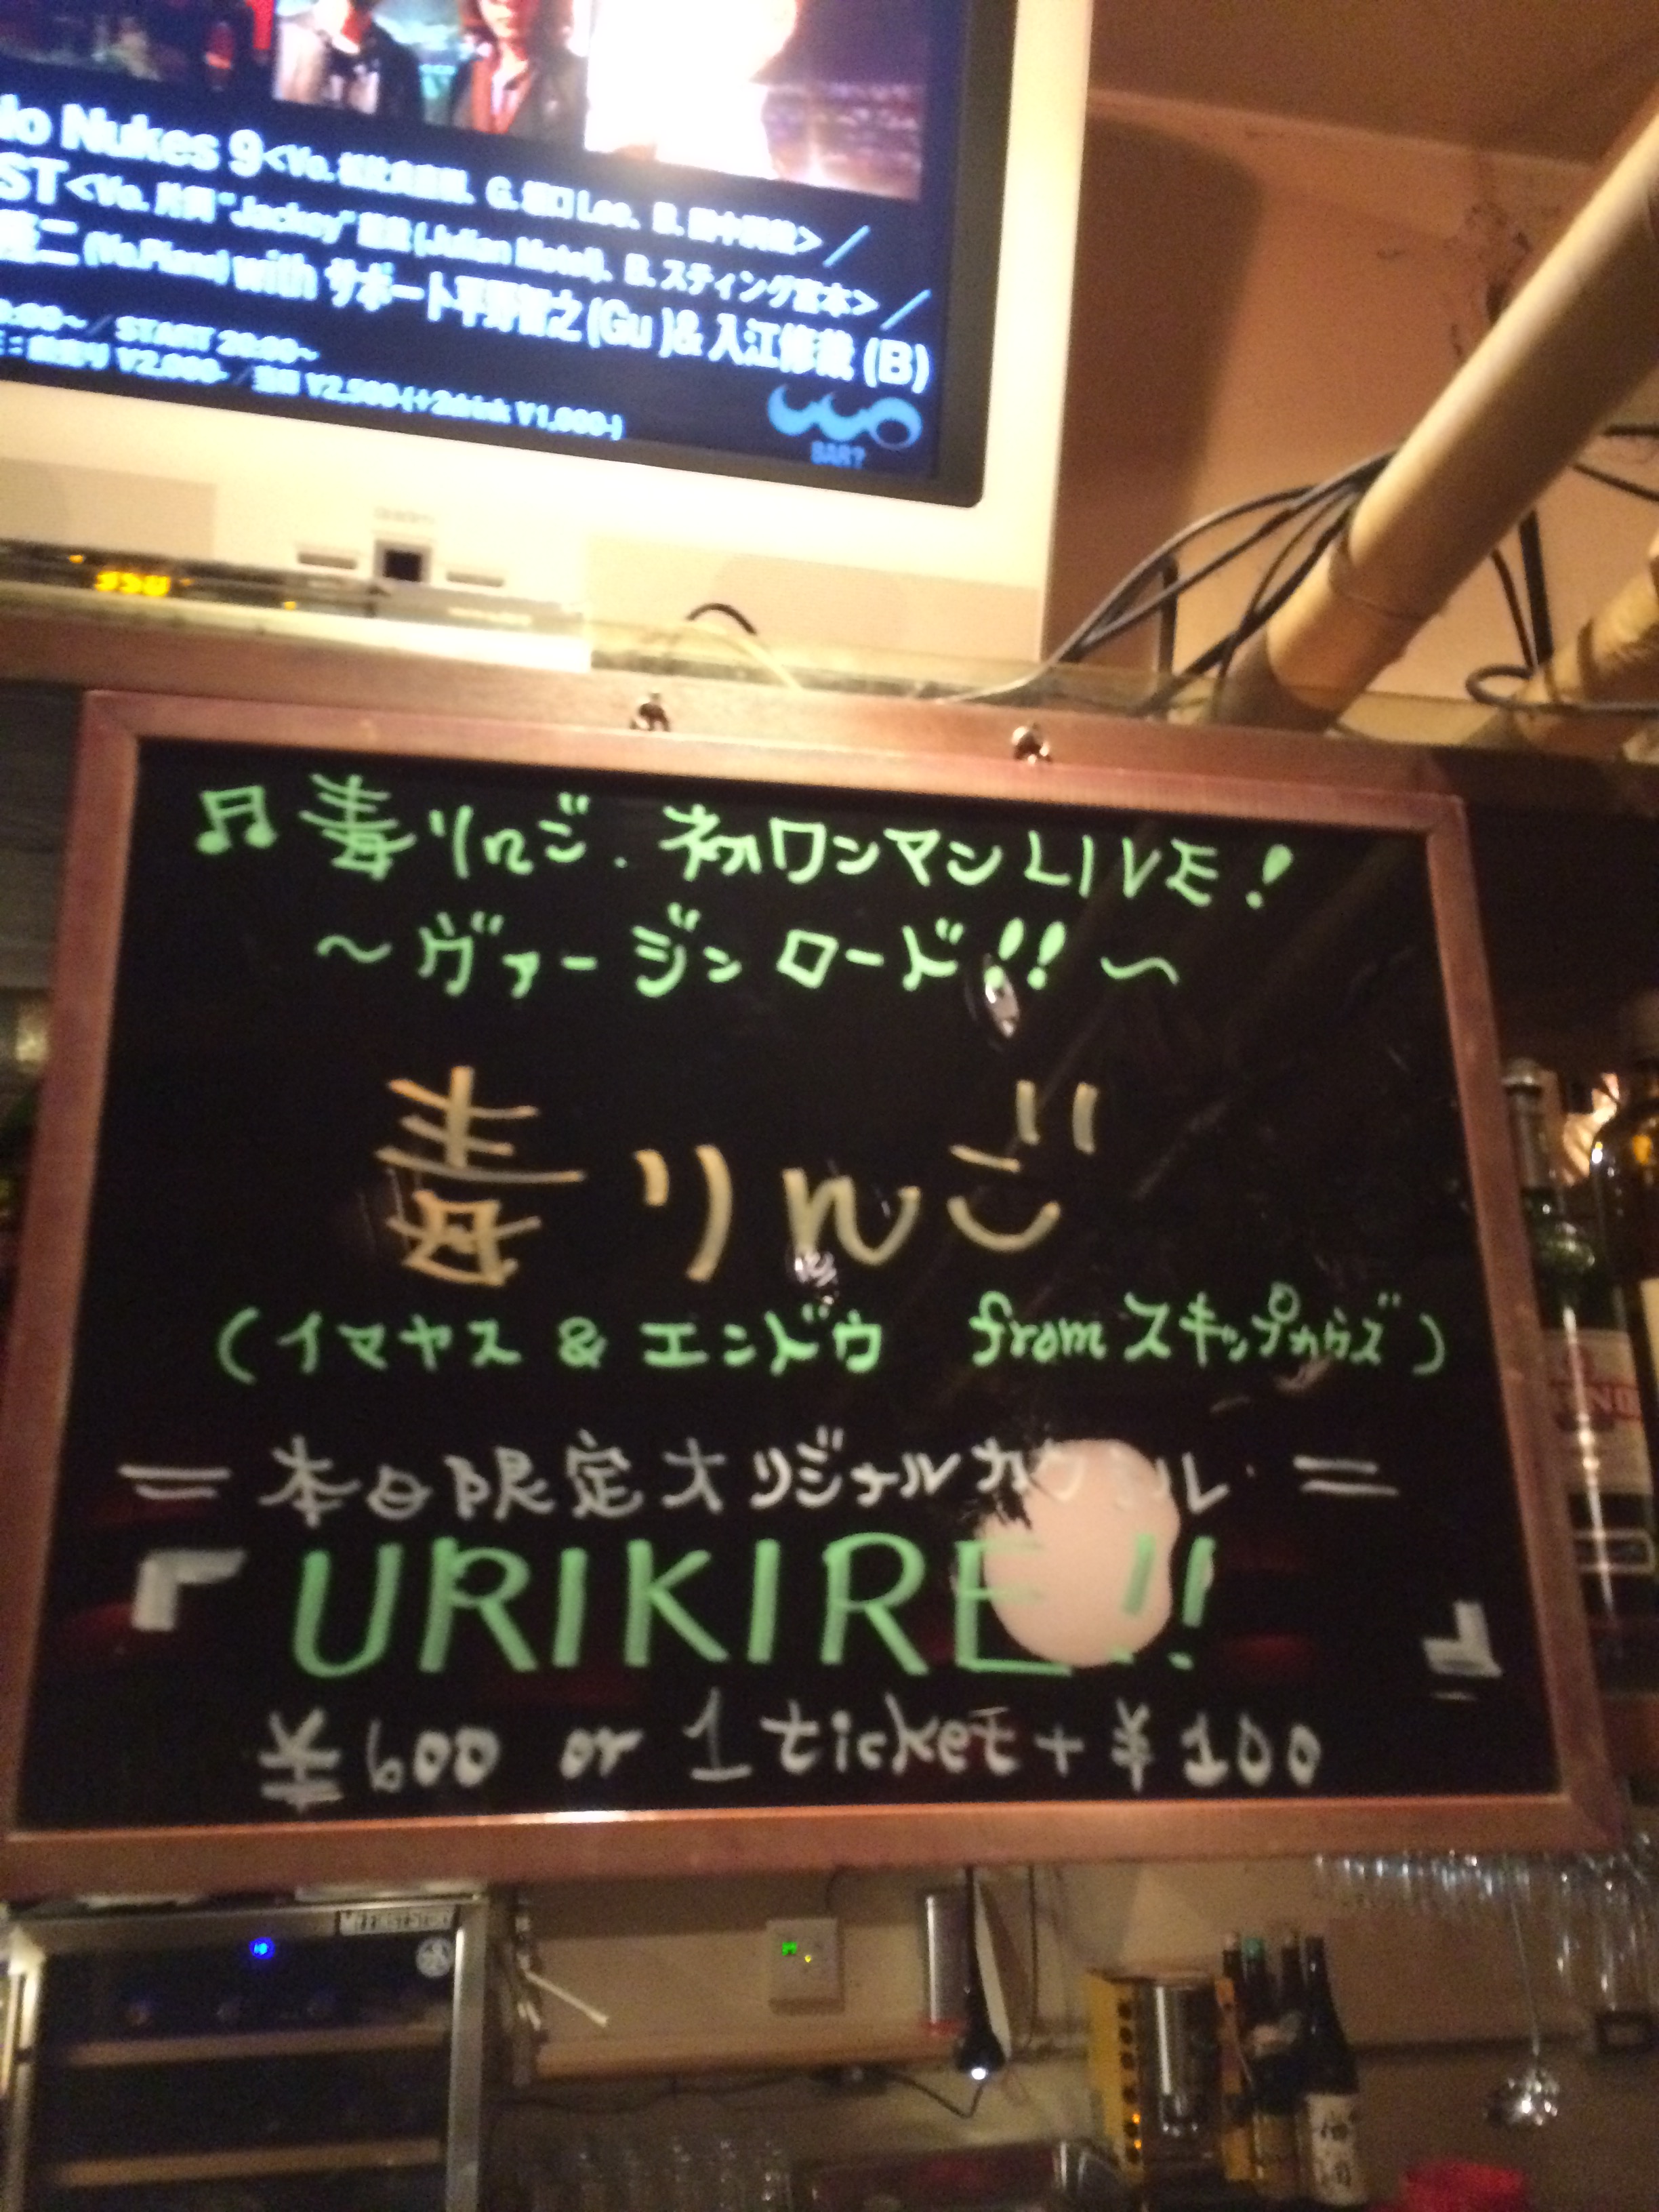 No Nukes 9<Vo.
ST<Vo. 片岡 "Jackey" (Julian Motel)、B. スティング宮本>／
二 (Vo.Piano) with サポート平野智之 (Gu )& 入江修哉 (B)
START 20:00~
¥2,000- ／当日 ¥2,500-(+2drink ¥1,000-)
BAR?
♫毒りんご. 初ワンマンLIVE!
～ヴァージンロード!!～
毒りんご
(イマヤス & エンドウ from スキップカウズ)
＝本日限定オリジナルカクテル＝
「URIKIRE!!」
¥600 or 1 ticket + ¥100